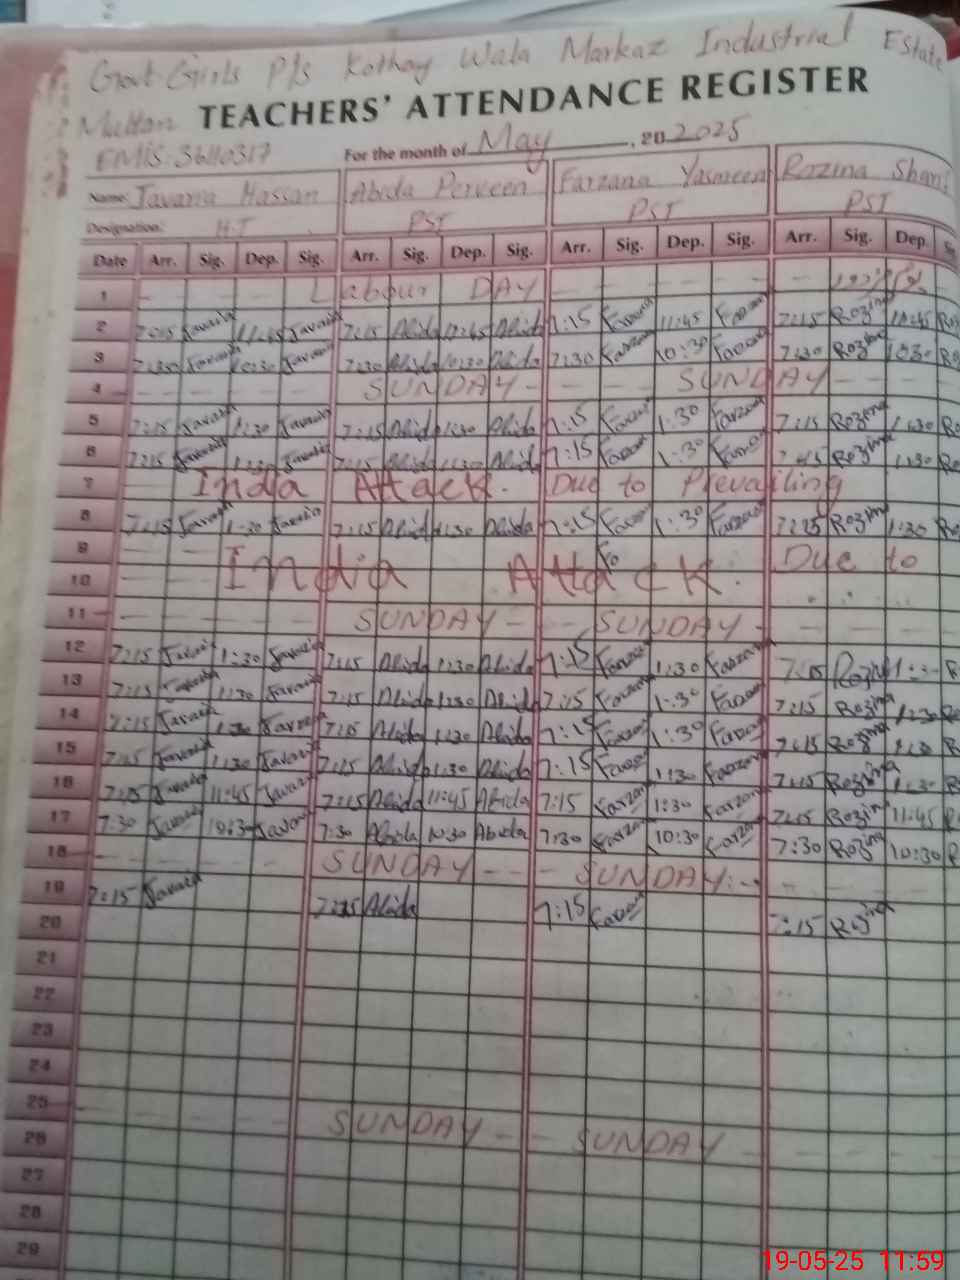 Govt. Girls P/s Kothay Wala Markaz Industrial Estate
Multan TEACHERS' ATTENDANCE REGISTER
EMIS: 36110317 For the month of May, 20 2025
Name: Javaria Hassan Abida Perveen Farzana Yasmeen Rozina Shari
Designation: H.T PST PST PST
Date Arr. Sig. Dep. Sig. Arr. Sig. Dep. Sig. Arr. Sig. Dep. Sig. Arr. Sig. Dep.
1 Labour DAY
2 7:15 Javaria 11:45 Javaria 7:15 Abida 11:45 Abida 7:15 Farzana 11:45 Farzana 7:15 Rozina 11:45 Ro
3 7:30 Javaria 10:30 Javaria 7:30 Abida 10:30 Abida 7:30 Farzana 10:30 Farzana 7:30 Rozina 10:30 Ro
4 SUNDAY SUNDAY
5 7:15 Javaria 1:30 Javaria 7:15 Abida 1:30 Abida 7:15 Farzana 1:30 Farzana 7:15 Rozina 1:30 Ro
6 7:15 Javaria 1:30 Javaria 7:15 Abida 1:30 Abida 7:15 Farzana 1:30 Farzana Rozina 1:30 Ro
7 India Attack. Due to Prevailing
8 7:15 Javaria 1:30 Javaria 7:15 Abida 1:30 Abida 7:15 Farzana 1:30 Farzana 7:15 Rozina 1:30 Ro
9 India Attack. Due to
10
11 SUNDAY SUNDAY
12 7:15 Javaria 1:30 Javaria 7:15 Abida 1:30 Abida 7:15 Farzana 1:30 Farzana 7:15 Rozina
13 7:15 Javaria 1:30 Javaria 7:15 Abida 1:30 Abida 7:15 Farzana 1:30 Farzana 7:15 Rozina 1:30 Ro
14 7:15 Javaria 1:30 Javaria 7:15 Abida 1:30 Abida 7:15 Farzana 1:30 Farzana 7:15 Rozina 1:30
15 7:15 Javaria 1:30 Javaria 7:15 Abida 1:30 Abida 7:15 Farzana 1:30 Farzana 7:15 Rozina 1:30
16 7:15 Javaria 11:45 Javaria 7:15 Abida 11:45 Abida 7:15 Farzana 1:30 Farzana 7:15 Rozina 11:45
17 7:30 Javaria 10:30 Javaria 7:30 Abida 10:30 Abida 7:30 Farzana 10:30 Farzana 7:30 Rozina 10:30
18 SUNDAY SUNDAY
19 7:15 Javaria 7:15 Abida 7:15 Farzana 7:15 Rozina
20
21
22
23
24
25 SUNDAY SUNDAY
26
27
28
29
19-05-25 11:59